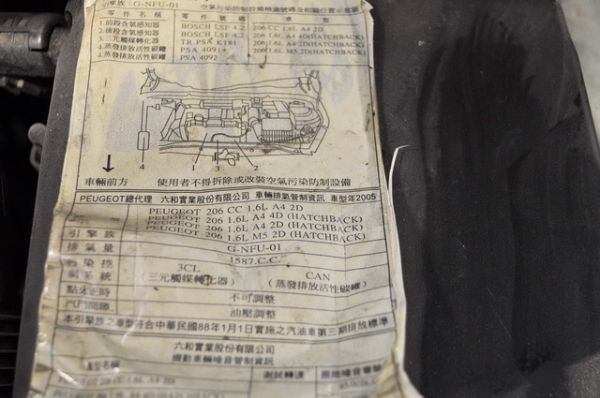 引擎族：G-NFU-01
零件名稱 零件號碼
1.前段含氧感知器 BOSCH LSF 4.2 206 CC 1.6L A4 2D
2.後段含氧感知器 BOSCH LSF 4.2 206 1.6L A4 4D(HATCHBACK)
3.三元觸媒轉化器 TR PSA K181 206 1.6L A4 2D(HATCHBACK)
4.蒸發排放活性碳罐 PSA 4091 206 1.6L M5 2D(HATCHBACK)
4.蒸發排放活性碳罐 PSA 4092
4 1 3 2
車輛前方 使用者不得拆除或改裝空氣污染防制設備
PEUGEOT總代理 六和實業股份有限公司 車輛排氣管制資訊 車型年2005
PEUGEOT 206 CC 1.6L A4 2D
PEUGEOT 206 1.6L A4 4D (HATCHBACK)
PEUGEOT 206 1.6L A4 2D (HATCHBACK)
PEUGEOT 206 1.6L M5 2D (HATCHBACK)
引擎族 G-NFU-01
排氣量 1587.C.C.
污染控
制系統 3CL CAN
(三元觸媒轉化器) (蒸發排放活性碳罐)
點火正時 不可調整
汽門間隙 油壓調整
本引擎族之車型符合中華民國88年1月1日實施之汽油車第三期排放標準
六和實業股份有限公司
機動車輛噪音管制資訊
車型名稱 測試轉速 原地噪音管制